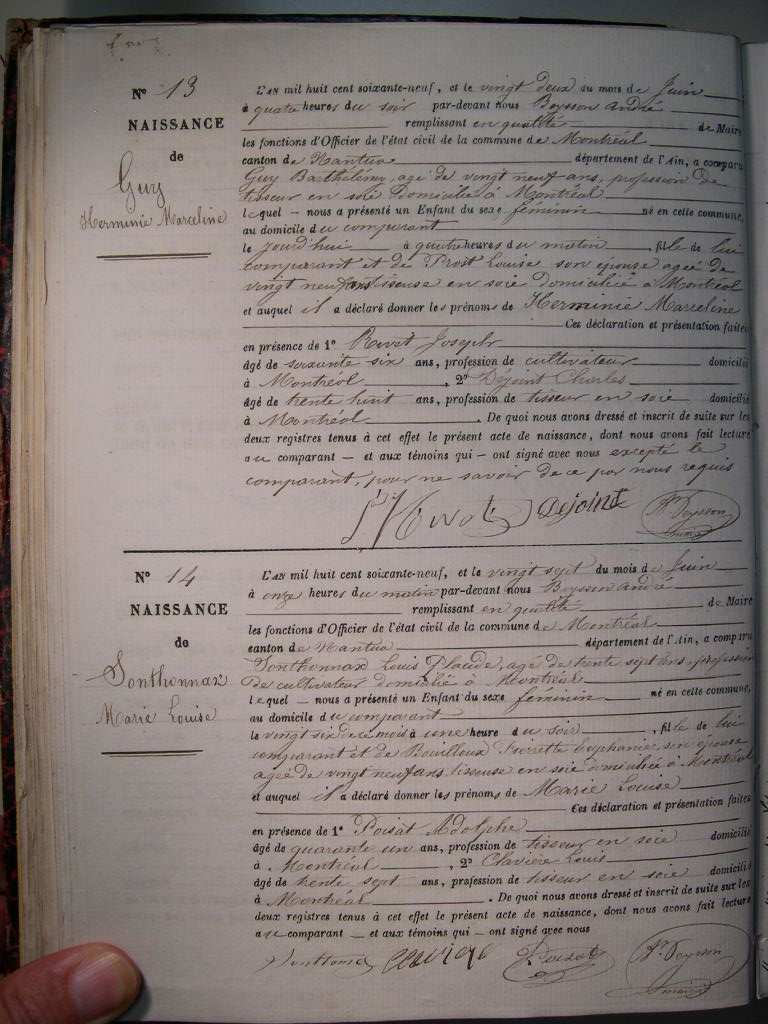 N° 13
NAISSANCE
de
Guy
Herminie Marceline
L'AN mil huit cent soixante-neuf, et le vingt deux du mois de Juin
à quatre heures du soir par-devant nous Boysson André
remplissant en qualité de Maire
les fonctions d'Officier de l'état civil de la commune de Montréal
canton de Nantua département de l'Ain, a comparu
Guy Barthélémy, agé de vingt neuf ans, profession de
tisseur en soie domicilié à Montréal
lequel — nous a présenté un Enfant du sexe féminin né en cette commune,
au domicile du comparant
le jourd'hui à quatre heures du matin, fille de lui
comparant et de Prost Louise son épouse agée de
vingt neuf ans tisseuse en soie domiciliée à Montréal
et auquel il a déclaré donner les prénoms de Herminie Marceline
Ces déclaration et présentation faites
en présence de 1° Rivot Joseph
âgé de soixante six ans, profession de cultivateur domicilié
à Montréal, 2° Déjoint Charles
âgé de trente huit ans, profession de tisseur en soie domicilié
à Montréal. De quoi nous avons dressé et inscrit de suite sur les
deux registres tenus à cet effet le présent acte de naissance, dont nous avons fait lecture
au comparant — et aux témoins qui — ont signé avec nous excepté le
comparant, pour ne savoir de ce par nous requis
Dejoint
N° 14
NAISSANCE
de
Sonthonnax
Marie Louise
L'AN mil huit cent soixante-neuf, et le vingt sept du mois de Juin
à onze heures du matin par-devant nous Boysson André
remplissant en qualité de Maire
les fonctions d'Officier de l'état civil de la commune de Montréal
canton de Nantua département de l'Ain, a comparu
Sonthonnax Louis Placide, agé de trente sept ans profession
de cultivateur domicilié à Montréal
lequel — nous a présenté un Enfant du sexe féminin né en cette commune,
au domicile du comparant
le vingt six de ce mois à une heure du soir, fille de lui
comparant et de Bouilloux son épouse
agée de vingt neuf ans tisseuse en soie domiciliée à Montréal
et auquel il a déclaré donner les prénoms de Marie Louise
Ces déclaration et présentation faites
en présence de 1° Poisat Adolphe
âgé de quarante un ans, profession de tisseur en soie domicilié
à Montréal, 2° Clavière Louis
âgé de trente sept ans, profession de tisseur en soie domicilié
à Montréal. De quoi nous avons dressé et inscrit de suite sur les
deux registres tenus à cet effet le présent acte de naissance, dont nous avons fait lecture
au comparant — et aux témoins qui — ont signé avec nous